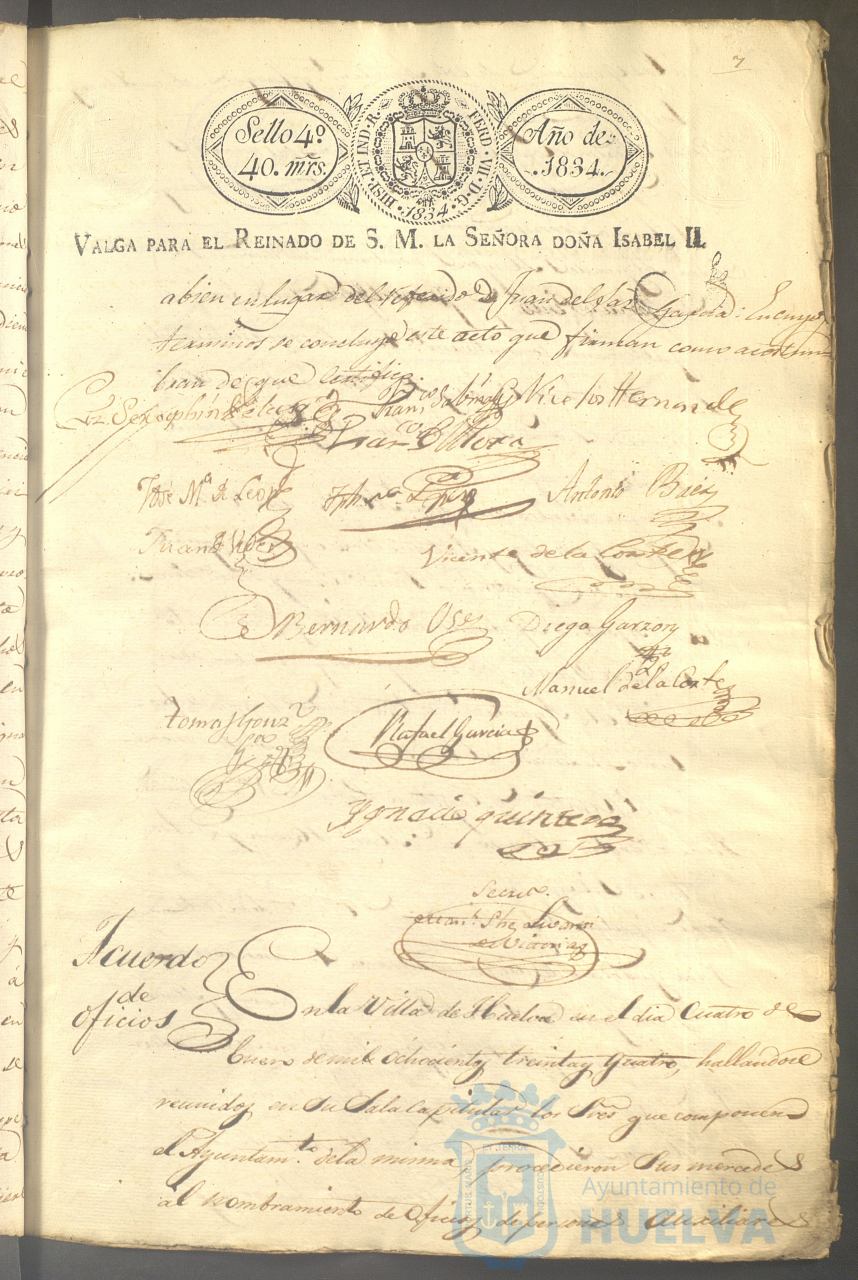 7
Sello 4º
40. mrs.
HISP. ET IND. R. FERD. VII. D. G.
1834.
Año de
1834.
VALGA PARA EL REINADO DE S. M. LA SEÑORA DOÑA ISABEL II.
abien en lugar del referido D Juan del Mar Garcia: En cuyos
terminos se concluyó este acto que firman como acostum
bran de que certifico.
Nicolas Hernande
José Mª de Leon
Lopez
Antonio Baez
Vicente de la Corte
Bernardo
Diego Garzon
Manuel de la Corte
Tomas Gonz
Rafael Garcia
Ignacio Quintero
Secret
Acuerdo
de
oficios
En la Villa de Huelva en el dia Cuatro de
Enero de mil ochocientos treinta y quatro, hallandose
reunidos en su Sala Capitular los Sres que componen
el Ayuntamto de la misma, procedieron Sus mercedes
al nombramiento de Oficios de personas Auxiliares
Ayuntamiento de
HUELVA